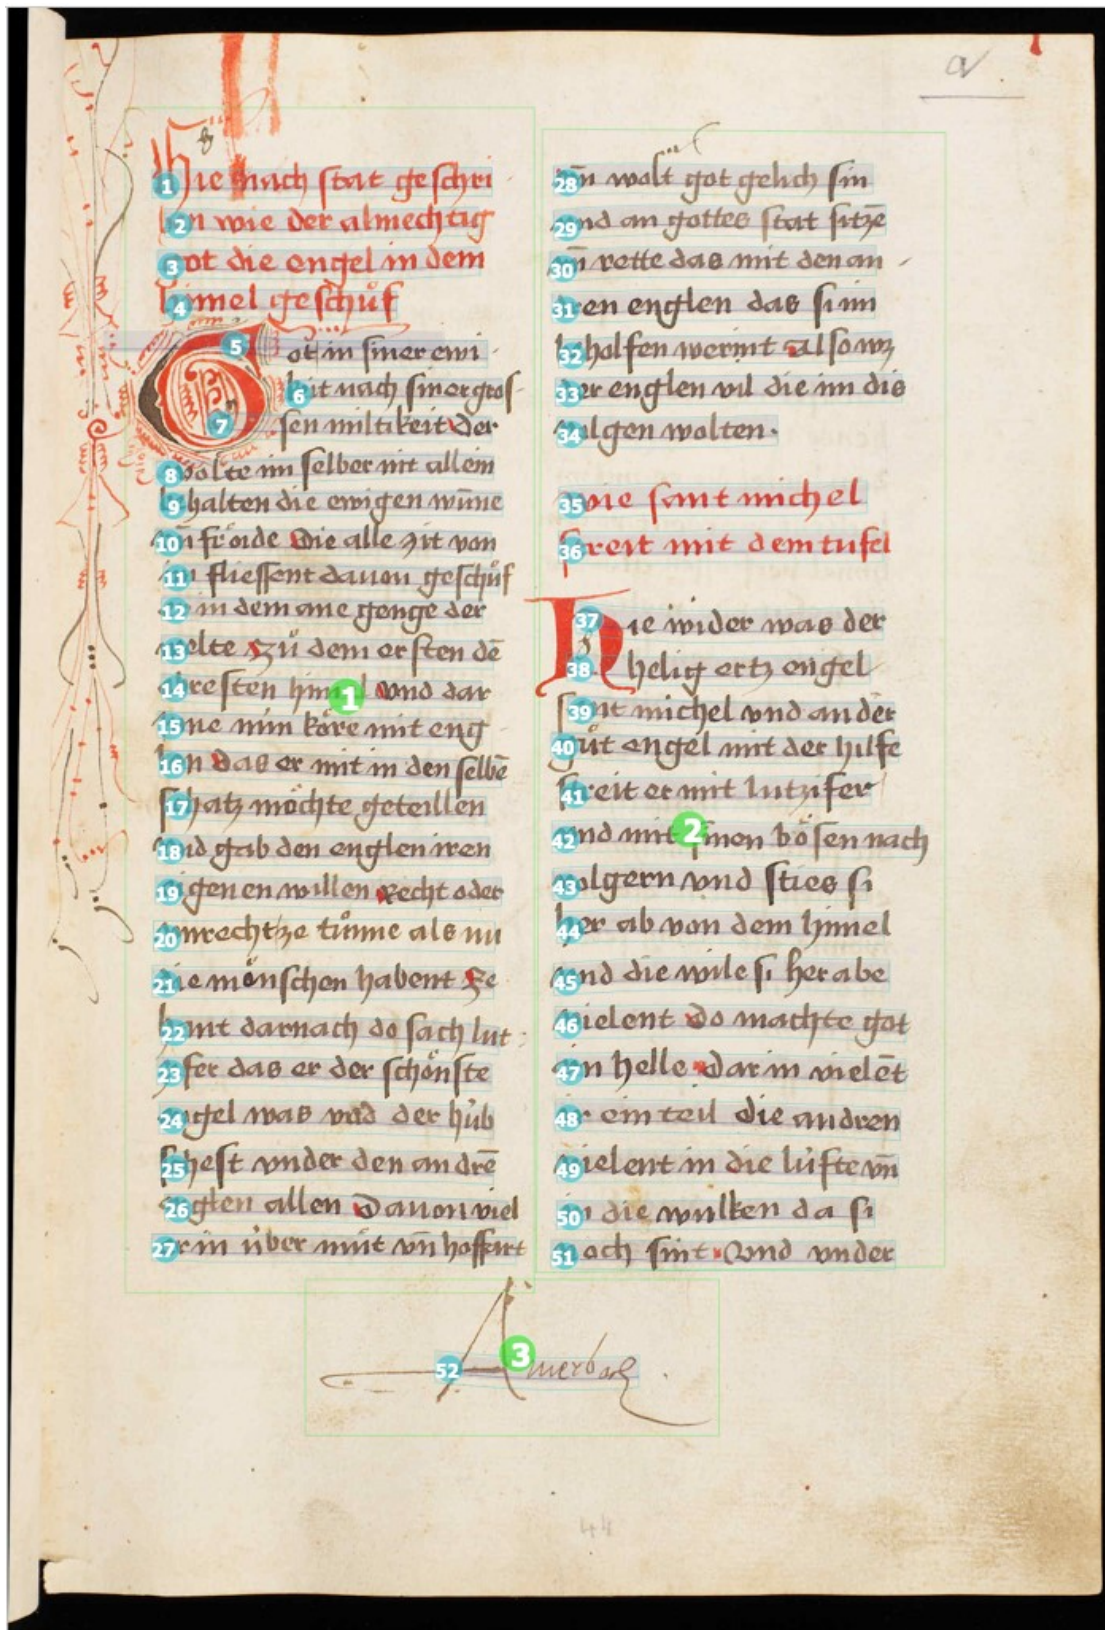 a
Hie nach stat geschri
ben wie der almechtig
got die engel in dem
himel geschůf
Got in siner ewi
keit nach siner gros
sen miltikeit Der
wolte im selber nit allein
behalten die ewigen wūne
vn̄ frӧide Die alle zit von
im fliessent davon geschůf
er in dem ane genge der
welte Zů dem ersten dē
obresten himel vnd dar
inne nün kӧre mit eng
len Das er mit in den selbē
schatz mӧchte geteillen
vnd gab den englen iren
eigenen willen Recht oder
vnrecht ze tůnne als nu
die mӧnschen habent Ze
hant darnach do sach lut
zifer das er der schӧnste
engel was vnd der hüb
schest vnder den andrē
englen allen Davon viel
er in über můt vn̄ hoffart
vn̄ wolt got gelich sin
vnd an gottes stat sitzē
vn̄ rette das mit den an
dren englen das si im
beholfen werint also wz
der englen vil die im dis
volgen wolten.
wie sant michel
streit mit dem tüfel
Hie wider was der
helig ertz engel
sant michel vnd ander
gůt engel mit der hilfe
streit er mit lutzifer
vnd mit sinen bӧsen nach
volgern vnd sties si
her ab von dem himel
vnd die wile si her abe
vielent Do machte got
ein helle Darin vielēt
ir ein teil die andren
vielent in die lüfte vn̄
in die wulken da si
noch sint Vnd vnder
Auerbach
44